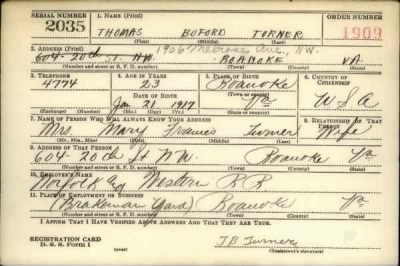 SERIAL NUMBER 1. NAME (Print) ORDER NUMBER
2035 THOMAS BUFORD TURNER 1909
(First) (Middle) (Last)
1906 Melrose Ave., N.W.
2. ADDRESS (Print)
604-20th St. NW ROANOKE VA.
(Number and street or R. F. D. number) (Town) (County) (State)
3. TELEPHONE 4. AGE IN YEARS 5. PLACE OF BIRTH 6. COUNTRY OF CITIZENSHIP
4774 23 Roanoke
(Town or county)
DATE OF BIRTH
Jan 21 1917 Va U S A
(Exchange) (No.) (Mo.) (Day) (Yr.) (State or country)
7. NAME OF PERSON WHO WILL ALWAYS KNOW YOUR ADDRESS 8. RELATIONSHIP OF THAT PERSON
Mrs Mary Frances Turner Wife
(Mr., Mrs., Miss) (First) (Middle) (Last)
9. ADDRESS OF THAT PERSON
604-20th St NW Roanoke Va
(Number and street or R. F. D. number) (Town) (County) (State)
10. EMPLOYER'S NAME
Norfolk and Western R R
11. PLACE OF EMPLOYMENT OR BUSINESS
(Brakeman Yard) Roanoke Va
(Number and street or R. F. D. number) (Town) (County) (State)
I AFFIRM THAT I HAVE VERIFIED ABOVE ANSWERS AND THAT THEY ARE TRUE.
REGISTRATION CARD
D. S. S. Form 1 (over) T B Turner
(Registrant's signature)